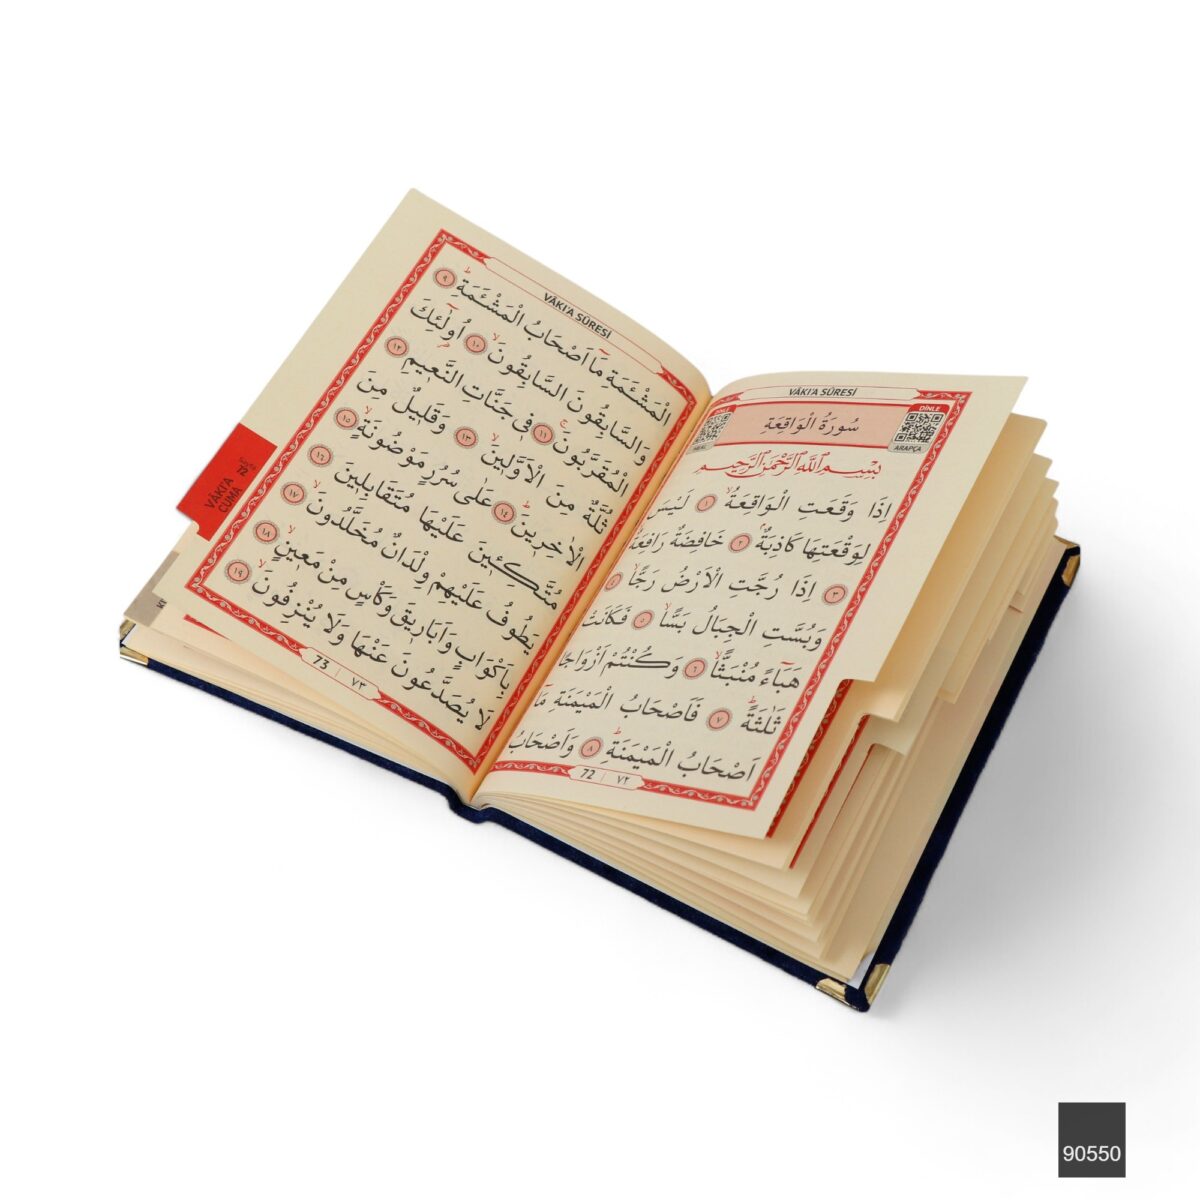 VÂKI'A SÛRESİ
DİNLE
سُورَةُ الْوَاقِعَةِ
DİNLE
ARAPÇA
بِسْمِ اللّٰهِ الرَّحْمٰنِ الرَّحِيمِ
اِذَا وَقَعَتِ الْوَاقِعَةُ ﴿١﴾ لَيْسَ
لِوَقْعَتِهَا كَاذِبَةٌ ﴿٢﴾ خَافِضَةٌ رَافِعَةٌ
﴿٣﴾ اِذَا رُجَّتِ الْاَرْضُ رَجًّا ﴿٤﴾
وَبُسَّتِ الْجِبَالُ بَسًّا ﴿٥﴾ فَكَانَتْ
هَبَٓاءً مُنْبَثًّا ﴿٦﴾ وَكُنْتُمْ اَزْوَاجًا
ثَلٰثَةً ﴿٧﴾ فَاَصْحَابُ الْمَيْمَنَةِ مَا
اَصْحَابُ الْمَيْمَنَةِ ﴿٨﴾ وَاَصْحَابُ
72 | ٧٢
VÂKI'A SÛRESİ
الْمَشْـَٔمَةِ مَٓا اَصْحَابُ الْمَشْـَٔمَةِ ﴿٩﴾
وَالسَّابِقُونَ السَّابِقُونَ ﴿١٠﴾ اُو۬لٰٓئِكَ
الْمُقَرَّبُونَ ﴿١١﴾ فِي جَنَّاتِ النَّعِيمِ ﴿١٢﴾
ثُلَّةٌ مِنَ الْاَوَّلِينَ ﴿١٣﴾ وَقَلِيلٌ مِنَ
الْاٰخِرِينَ ﴿١٤﴾ عَلٰى سُرُرٍ مَوْضُونَةٍ ﴿١٥﴾
مُتَّكِـِٔينَ عَلَيْهَا مُتَقَابِلِينَ ﴿١٦﴾
يَطُوفُ عَلَيْهِمْ وِلْدَانٌ مُخَلَّدُونَ ﴿١٧﴾
بِاَكْوَابٍ وَاَبَارِيقَ وَكَأْسٍ مِنْ مَعِينٍ ﴿١٨﴾
لَا يُصَدَّعُونَ عَنْهَا وَلَا يُنْزِفُونَ ﴿١٩﴾
73 | ٧٣
VÂKI'A
CUMA
Sayfa
72
90550